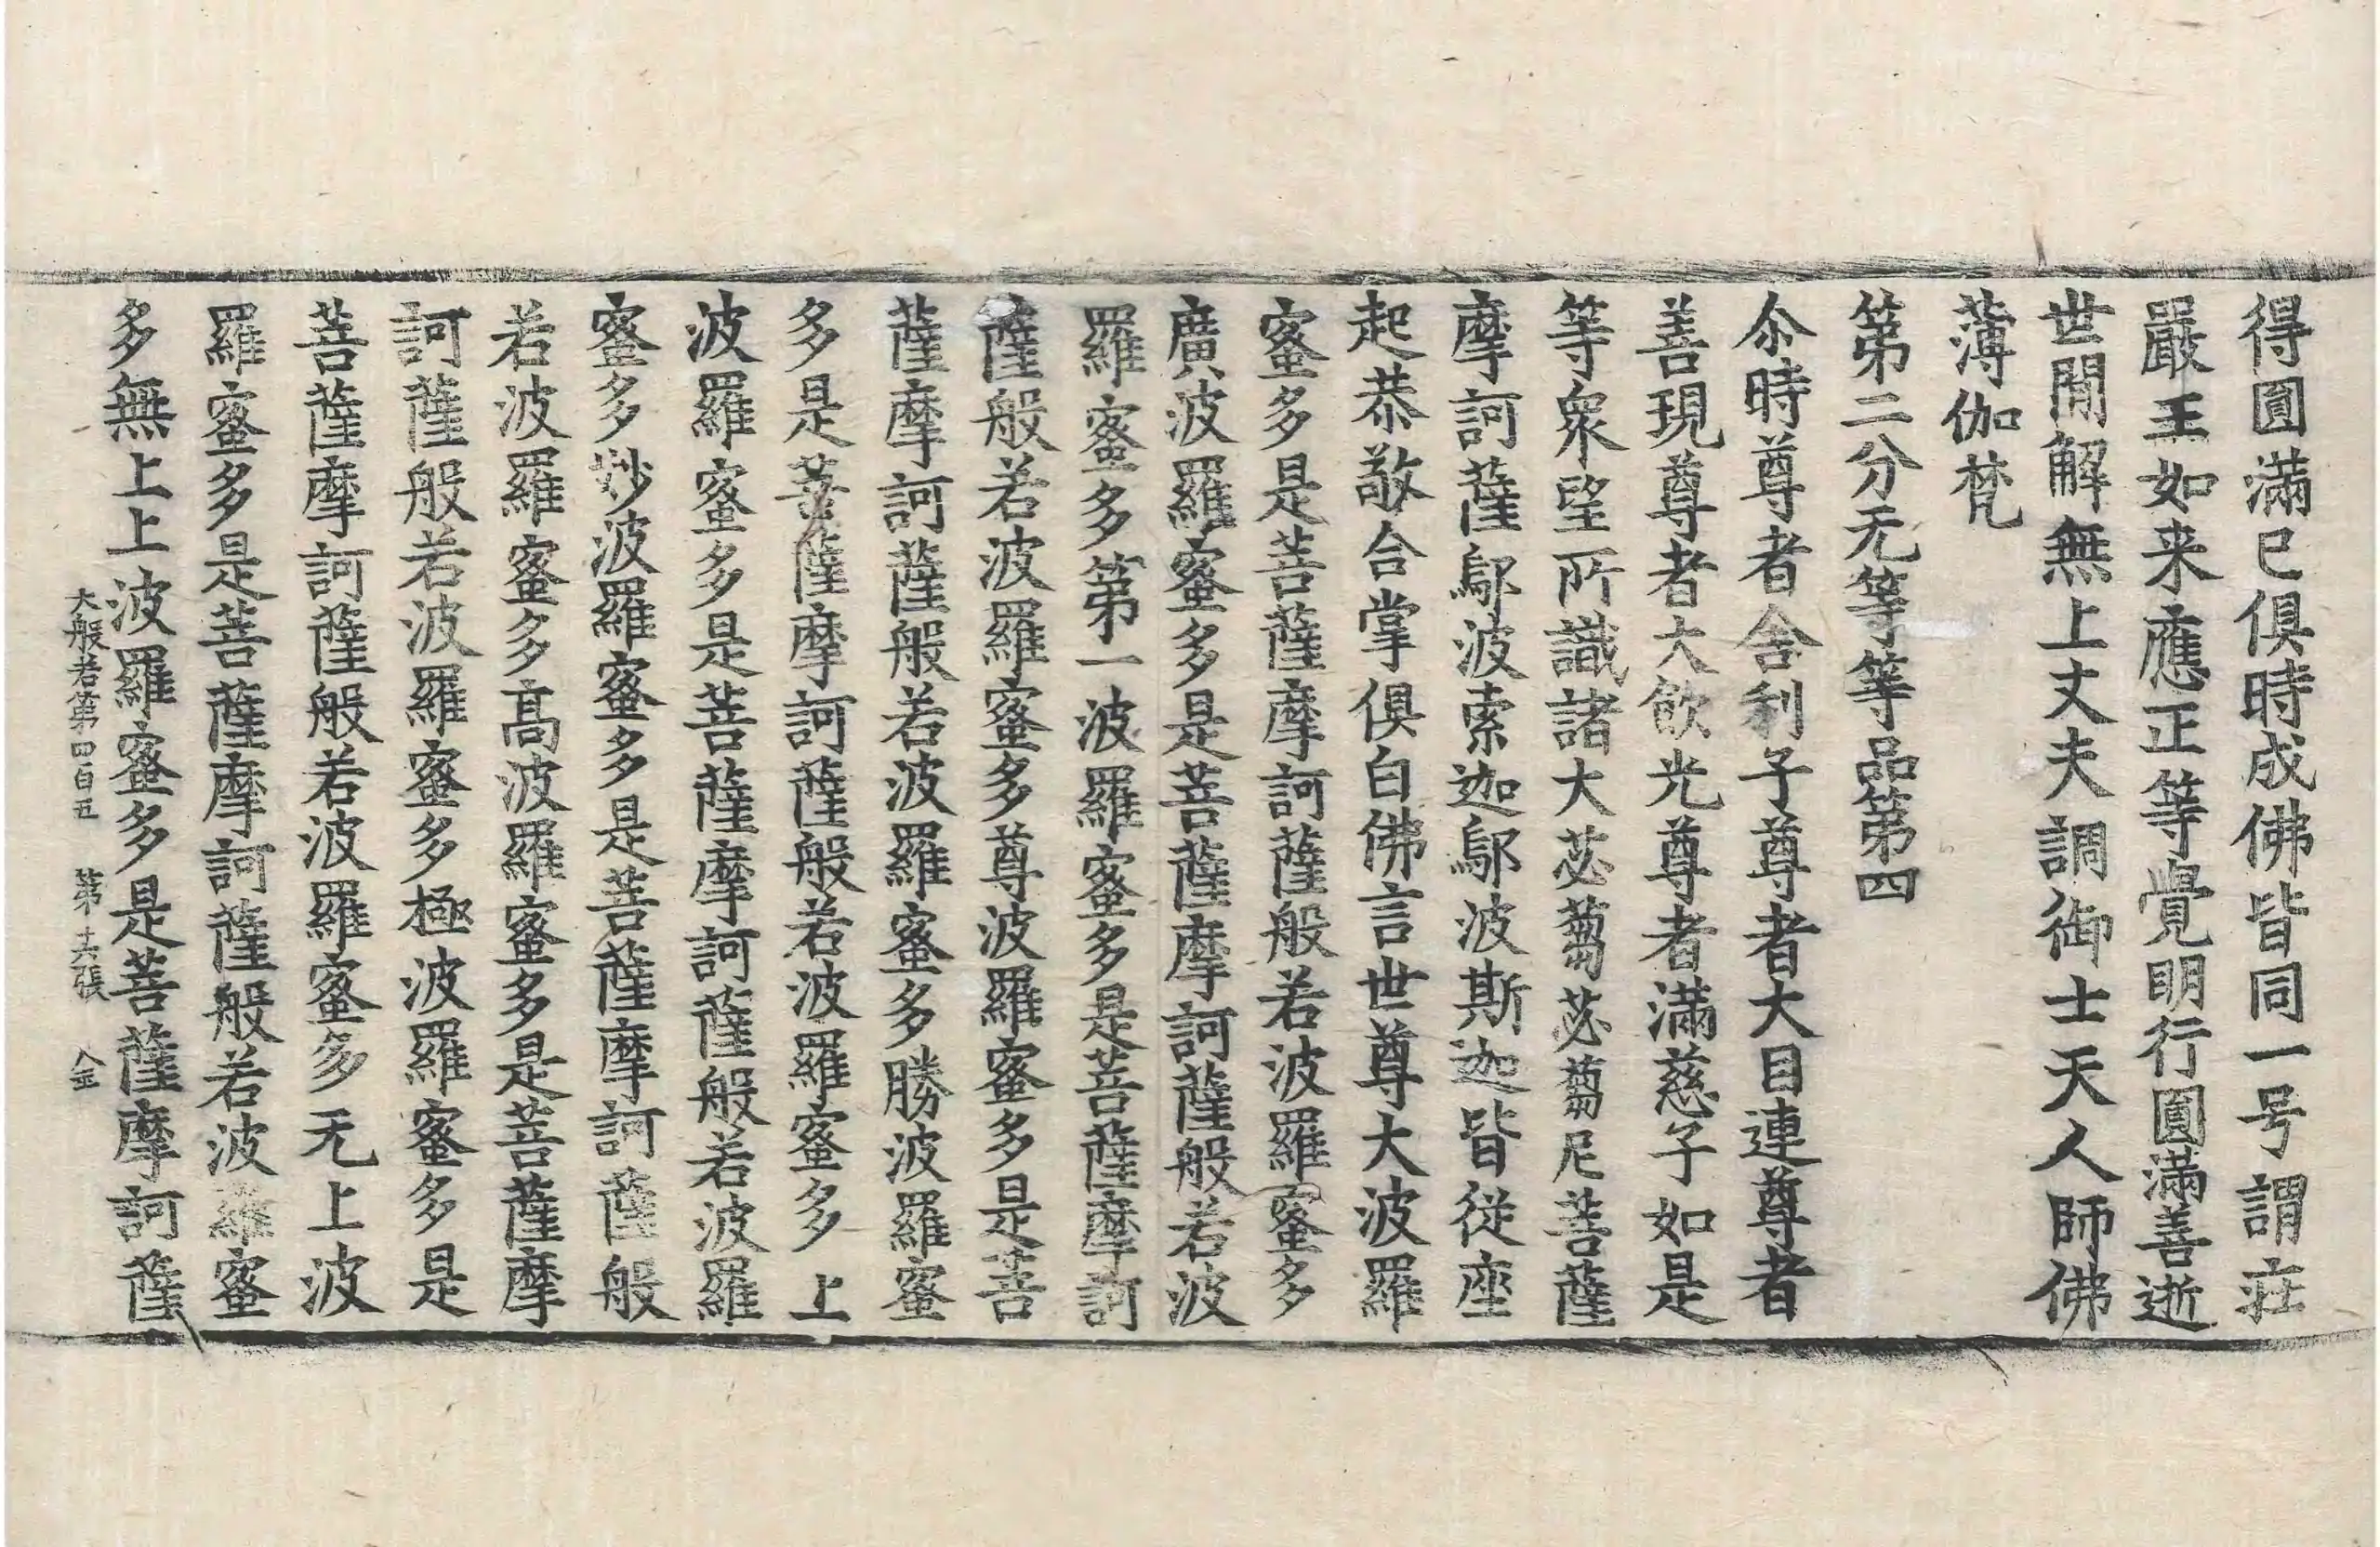 得圓滿已俱時成佛皆同一号謂莊
嚴王如来應正等覺明行圓滿善逝
世間解無上丈夫調御士天人師佛
薄伽梵
第二分无等等品第四
尒時尊者舍利子尊者大目連尊者
善現尊者大飲光尊者滿慈子如是
等衆望所識諸大苾蒭苾蒭尼菩薩
摩訶薩鄔波索迦鄔波斯迦皆從座
起恭敬合掌俱白佛言世尊大波羅
蜜多是菩薩摩訶薩般若波羅蜜多
廣波羅蜜多是菩薩摩訶薩般若波
羅蜜多第一波羅蜜多是菩薩摩訶
薩般若波羅蜜多尊波羅蜜多是菩
薩摩訶薩般若波羅蜜多勝波羅蜜
多是菩薩摩訶薩般若波羅蜜多上
波羅蜜多是菩薩摩訶薩般若波羅
蜜多妙波羅蜜多是菩薩摩訶薩般
若波羅蜜多高波羅蜜多是菩薩摩
訶薩般若波羅蜜多極波羅蜜多是
菩薩摩訶薩般若波羅蜜多无上波
羅蜜多是菩薩摩訶薩般若波羅蜜
多無上上波羅蜜多是菩薩摩訶薩
大般若第四百五 第十六張 金